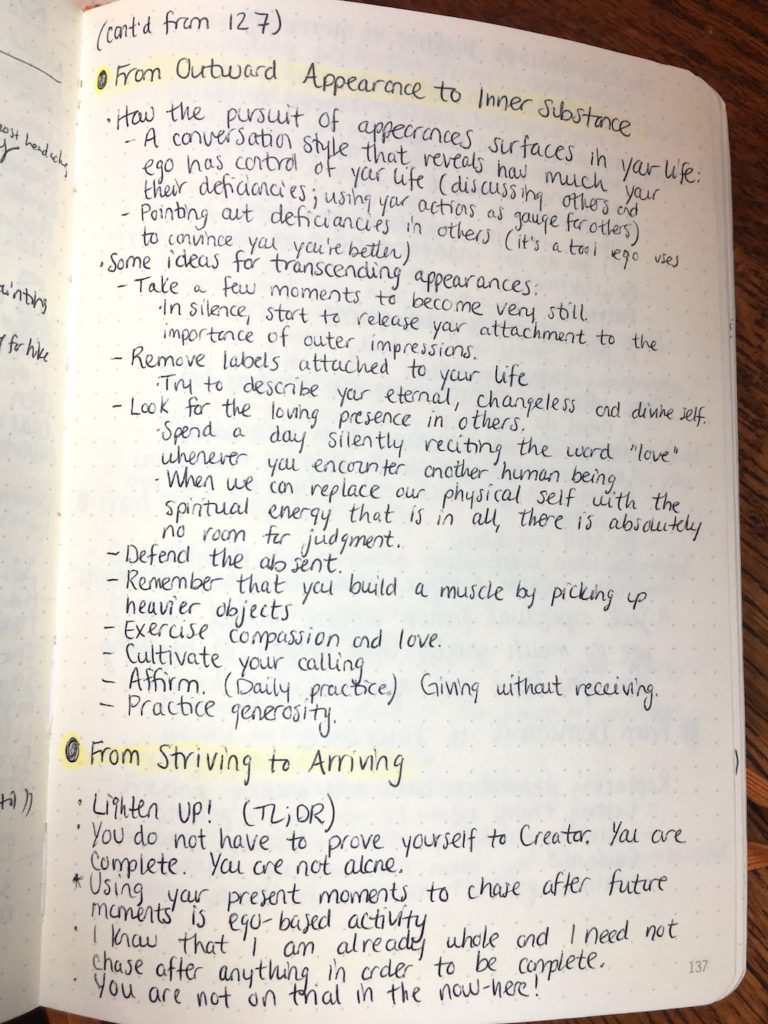 (cont'd from 127)
From Outward Appearance to Inner Substance
· How the pursuit of appearances surfaces in your life:
- A conversation style that reveals how much your
ego has control of your life (discussing others and
their deficiancies; using your actions as gauge for others)
- Pointing out deficiancies in others (it's a tool ego uses
to convince you you're better)
· Some ideas for transcending appearances:
- Take a few moments to become very still.
· In silence, start to release your attachment to the
importance of outer impressions.
- Remove labels attached to your life
· Try to describe your eternal, changeless and divine self.
- Look for the loving presence in others.
· Spend a day silently reciting the word "love"
whenever you encounter another human being
· When we can replace our physical self with the
spiritual energy that is in all, there is absolutely
no room for judgment.
- Defend the absent.
- Remember that you build a muscle by picking up
heavier objects
- Exercise compassion and love.
- Cultivate your calling
- Affirm. (Daily practice) Giving without receiving.
- Practice generosity.
From Striving to Arriving
· Lighten UP! (TL;DR)
· You do not have to prove yourself to Creator. You are
complete. You are not alone.
* Using your present moments to chase after future
moments is ego-based activity
· I know that I am already whole and I need not
chase after anything in order to be complete.
· You are not on trial in the now-here!
137
for hike